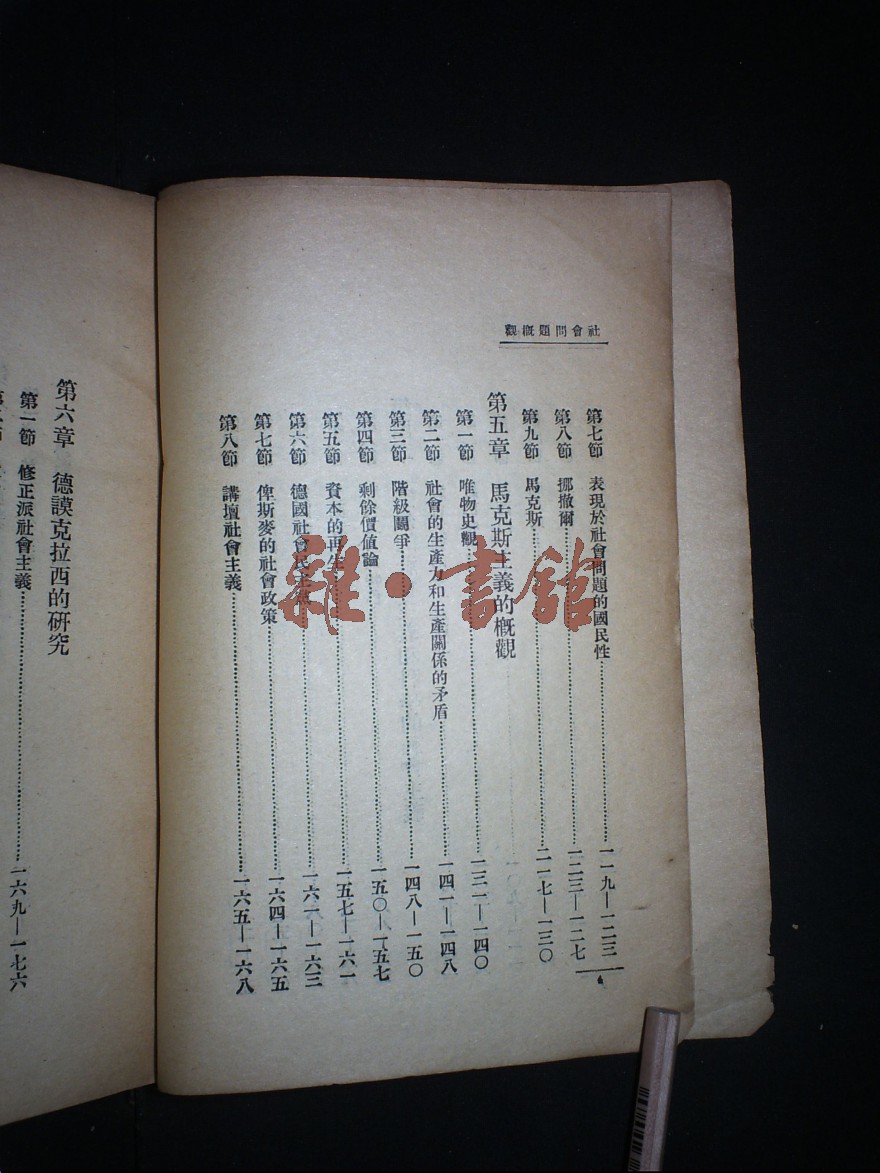 社會問題概觀
第七節 表現於社會問題的國民性……一一九—一二三
第八節 挪撒爾……一二三—一二七
第九節 馬克斯……二一七—一三〇
第五章 馬克斯主義的概觀
第一節 唯物史觀……一三一—一四〇
第二節 社會的生產力和生產關係的矛盾……一四一—一四八
第三節 階級鬭爭……一四八—一五〇
第四節 剩餘價値論……一五〇—一五七
第五節 資本的再生……一五七—一六一
第六節 德國社會民主……一六一—一六三
第七節 俾斯麥的社會政策……一六四—一六五
第八節 講壇社會主義……一六五—一六八
第六章 德謨克拉西的研究
第一節 修正派社會主義……一六九—一七六
雜·書館